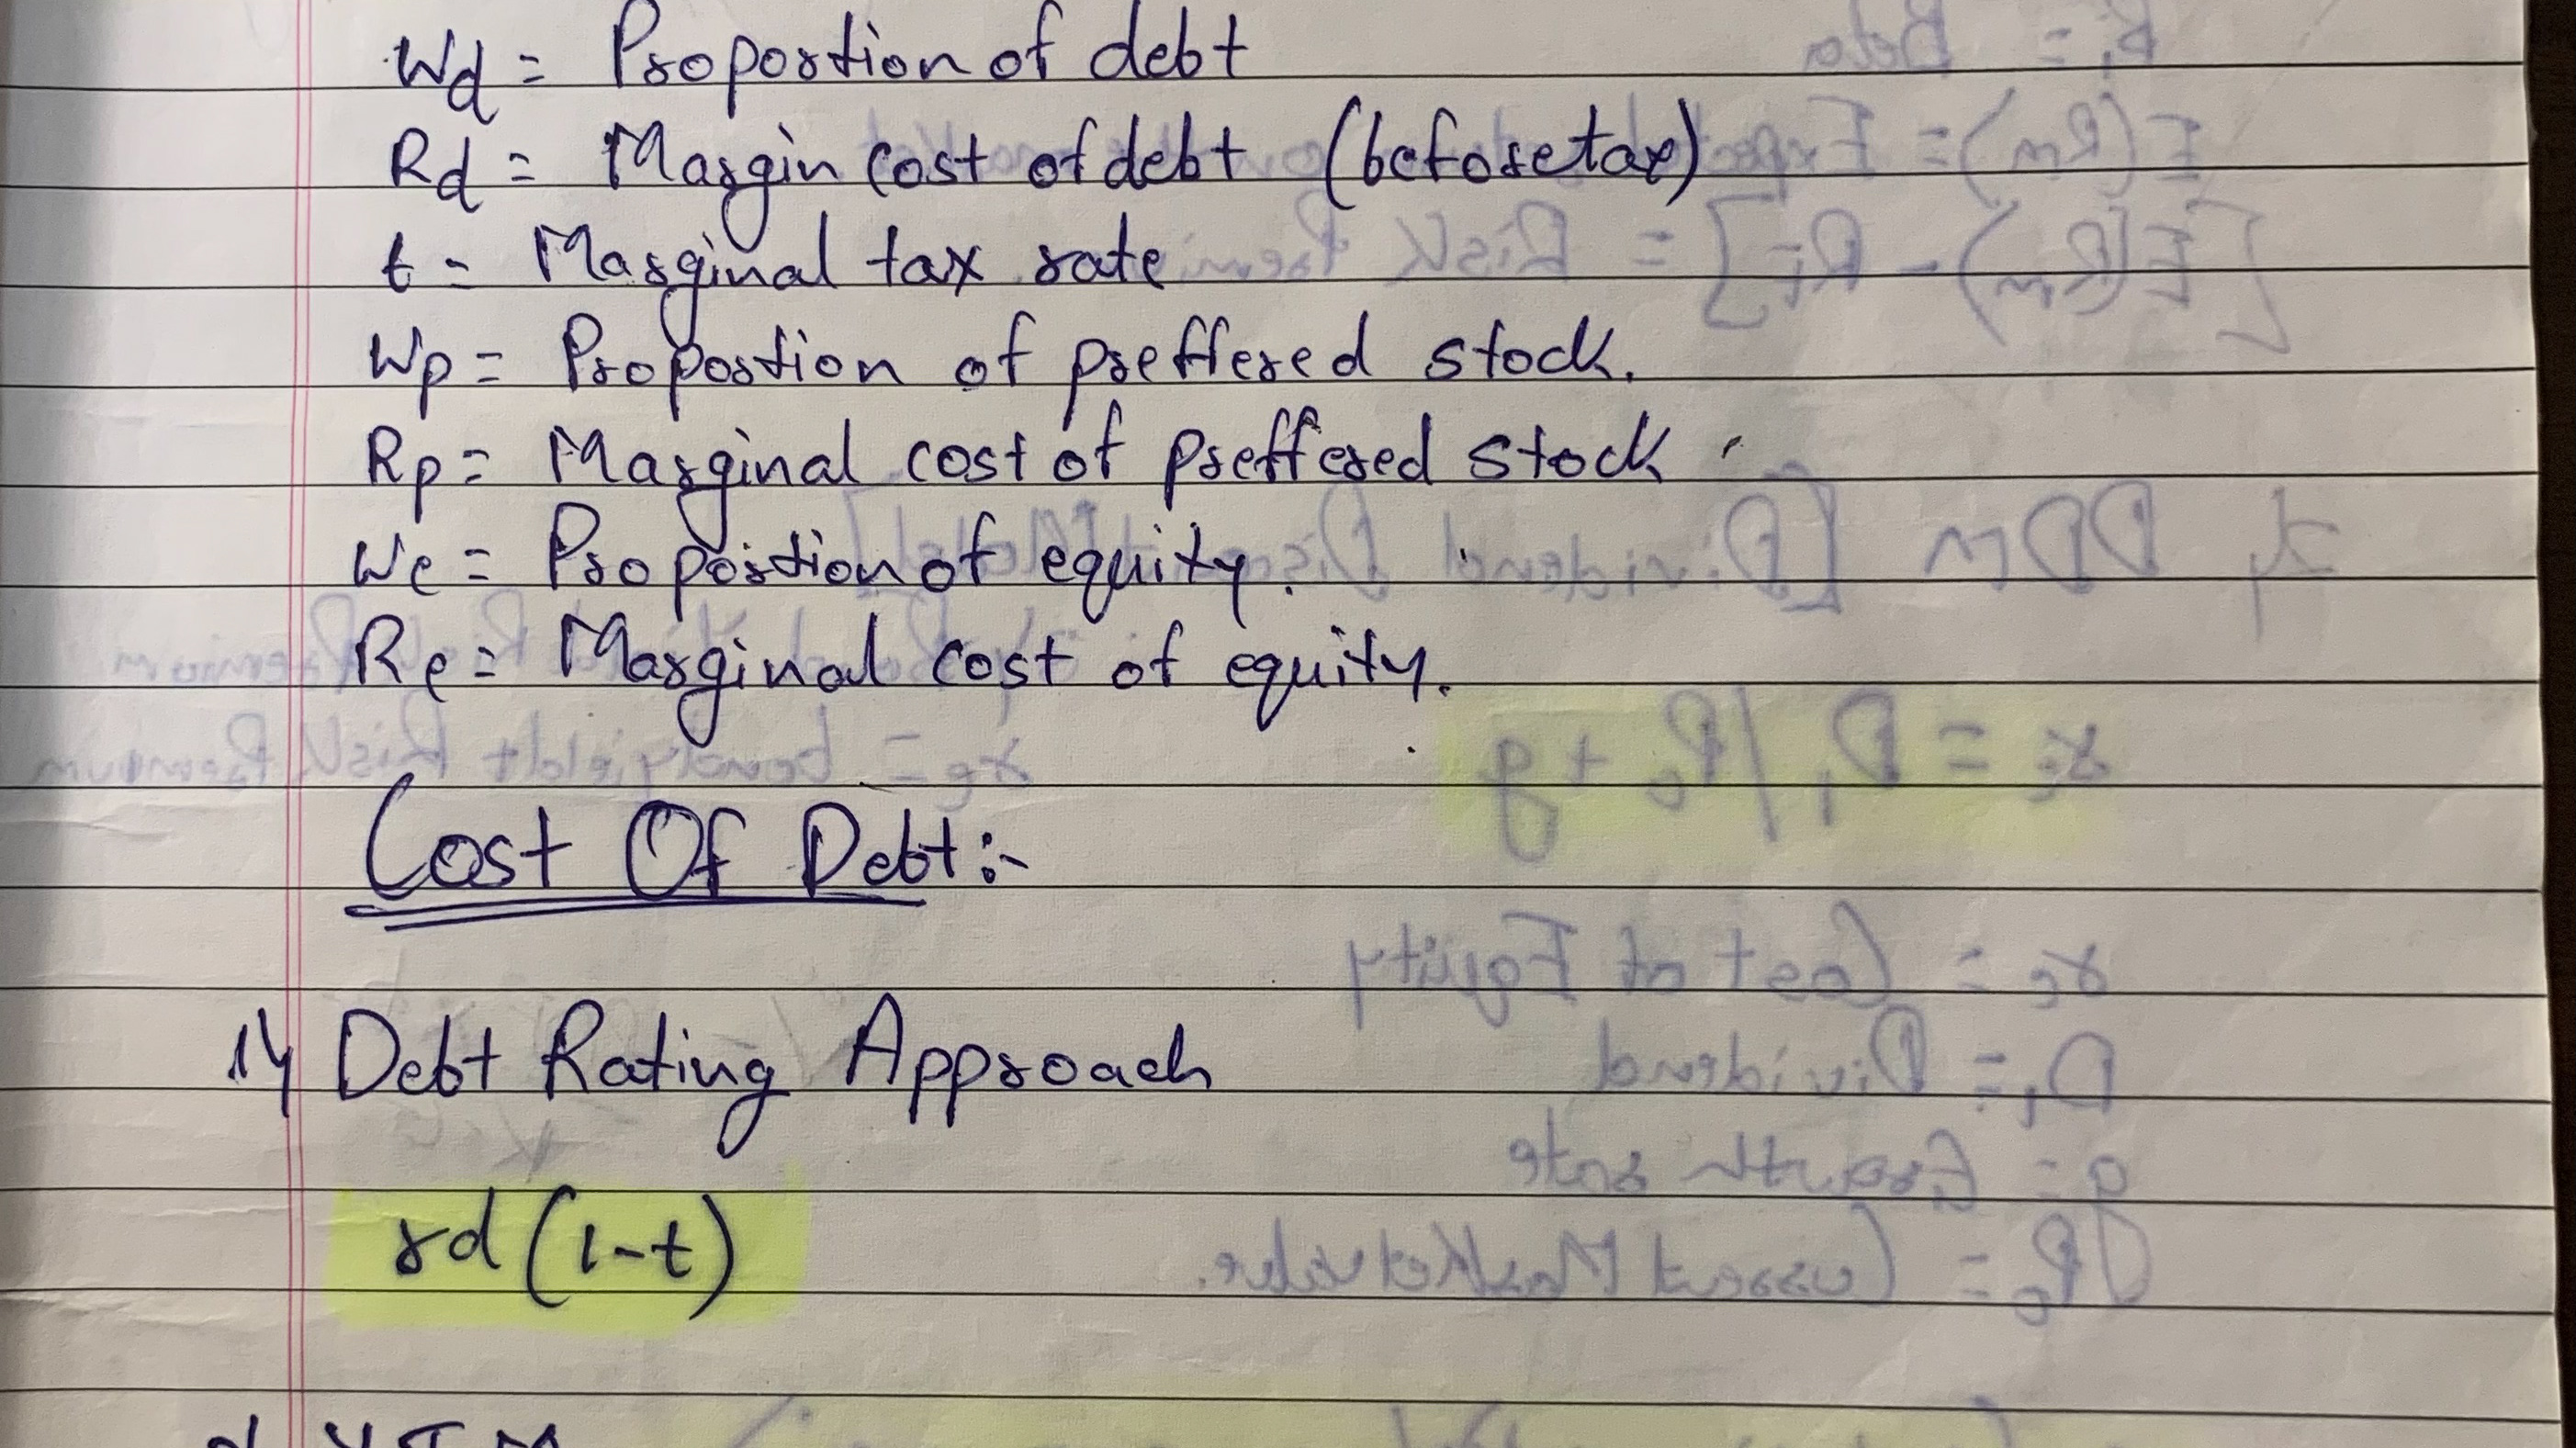 Wd = Proportion of debt
Rd = Margin cost of debt (before tax)
t = Marginal tax rate
Wp = Proportion of preffered stock.
Rp = Marginal cost of preffered stock
We = Proportion of equity.
Re = Marginal cost of equity.
Cost Of Debt:-
1) Debt Rating Approach
rd (1-t)